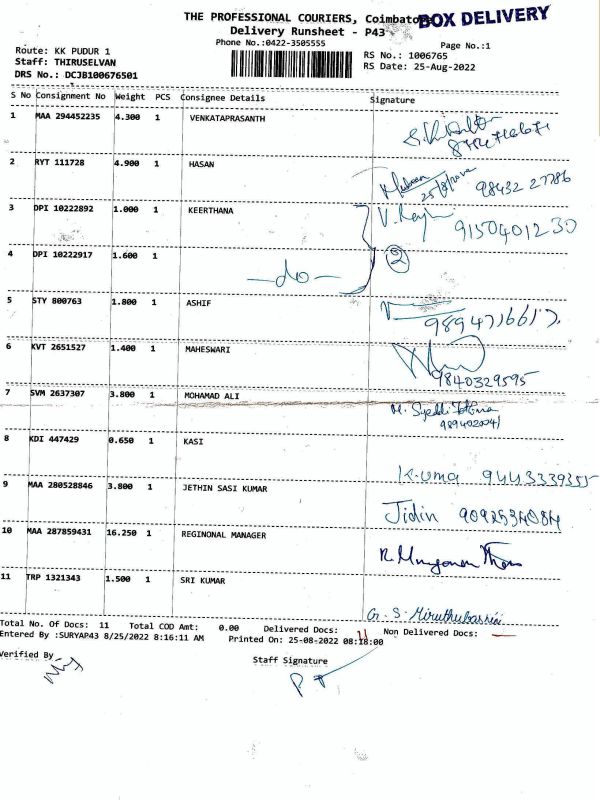 THE PROFESSIONAL COURIERS, Coimbatore
BOX DELIVERY
Delivery Runsheet - P43
Phone No.:0422-3505555
Page No.:1
Route: KK PUDUR 1
RS No.: 1006765
Staff: THIRUSELVAN
RS Date: 25-Aug-2022
DRS No.: DCJB100676501
S No Consignment No Weight PCS Consignee Details Signature
1 MAA 294452235 4.300 1 VENKATAPRASANTH
2 RYT 111728 4.900 1 HASAN
25/8/2022 98432 27786
3 DPI 10222892 1.000 1 KEERTHANA
9150401230
4 DPI 10222917 1.600 1
-do- 2
5 STY 800763 1.800 1 ASHIF
9894716617
6 KVT 2651527 1.400 1 MAHESWARI
9840329595
7 SVM 2637307 3.800 1 MOHAMAD ALI
8 KDI 447429 0.650 1 KASI
K.uma 9443339355
9 MAA 280528846 3.800 1 JETHIN SASI KUMAR
Jidin 9092534084
10 MAA 287859431 16.250 1 REGINONAL MANAGER
11 TRP 1321343 1.500 1 SRI KUMAR
G. S.
Total No. Of Docs: 11 Total COD Amt: 0.00 Delivered Docs: 11 Non Delivered Docs: —
Entered By :SURYAP43 8/25/2022 8:16:11 AM Printed On: 25-08-2022 08:18:00
Verified By
Staff Signature